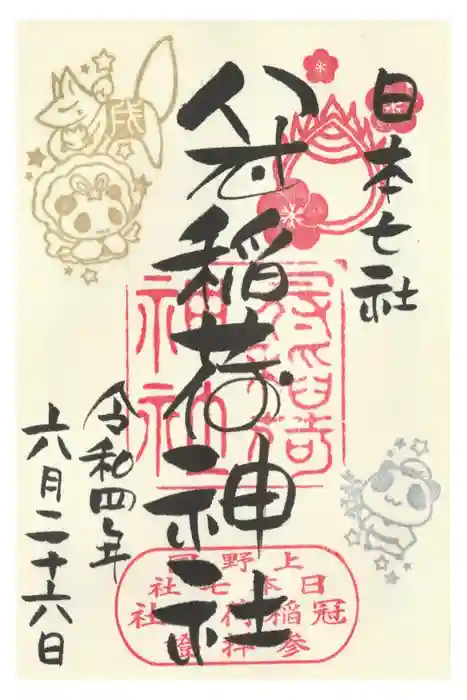 日本七社
冠稲荷神社
令和四年
六月二十六日
冠稲荷
神社
上野國
日本七社
冠稲荷神社
戌